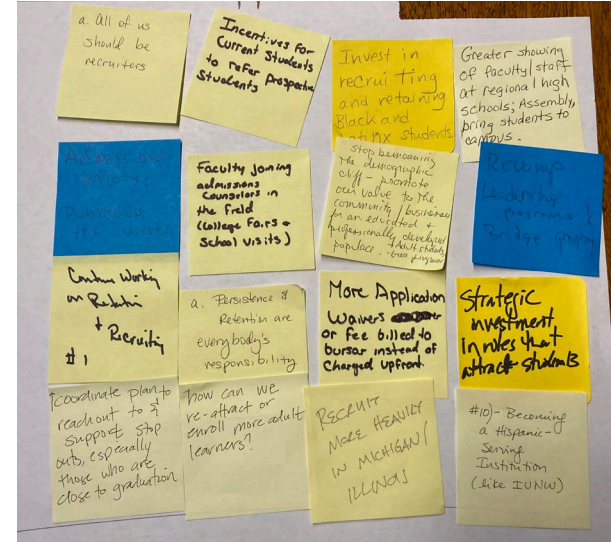 a. All of us
should be
recruiters
Incentives for
Current Students
to refer Prospective
Students
Invest in
recruiting
and retaining
Black and
Latinx students
Greater showing
of faculty/staff
at regional high
schools; Assembly,
bring students to
campus.
Admissions
Faculty joining
admissions
Counselors in
the field
(College Fairs &
School visits)
Stop bemoaning
the demographic
cliff - promote
our value to the
community, businesses
for an educated &
professionally developed
populace.
Revamp
Leadership
programs &
Bridge program
Continue Working
on Retention
+ Recruiting
#1
a. Persistence &
Retention are
everybody's
responsibility
More Application
Waivers
or fee billed to
bursar instead of
Charged upfront.
Strategic
investment
in roles that
attract students
Coordinate plan to
reach out to &
support stop
outs, especially
those who are
close to graduation
how can we
re-attract or
enroll more adult
learners?
RECRUIT
MORE HEAVILY
IN MICHIGAN/
ILLINOIS
#10) - Becoming
a Hispanic-
Serving
Institution
(like IUNW)